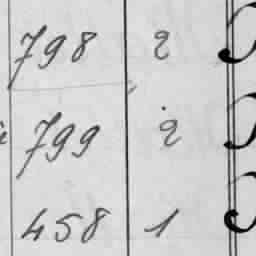 798 2
799 2
458 1